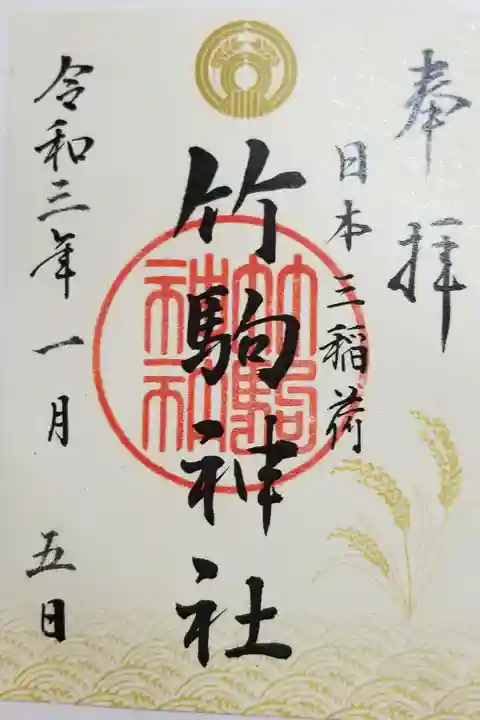 奉拝
日本三稲荷
竹駒神社
竹駒
神社
令和三年一月五日